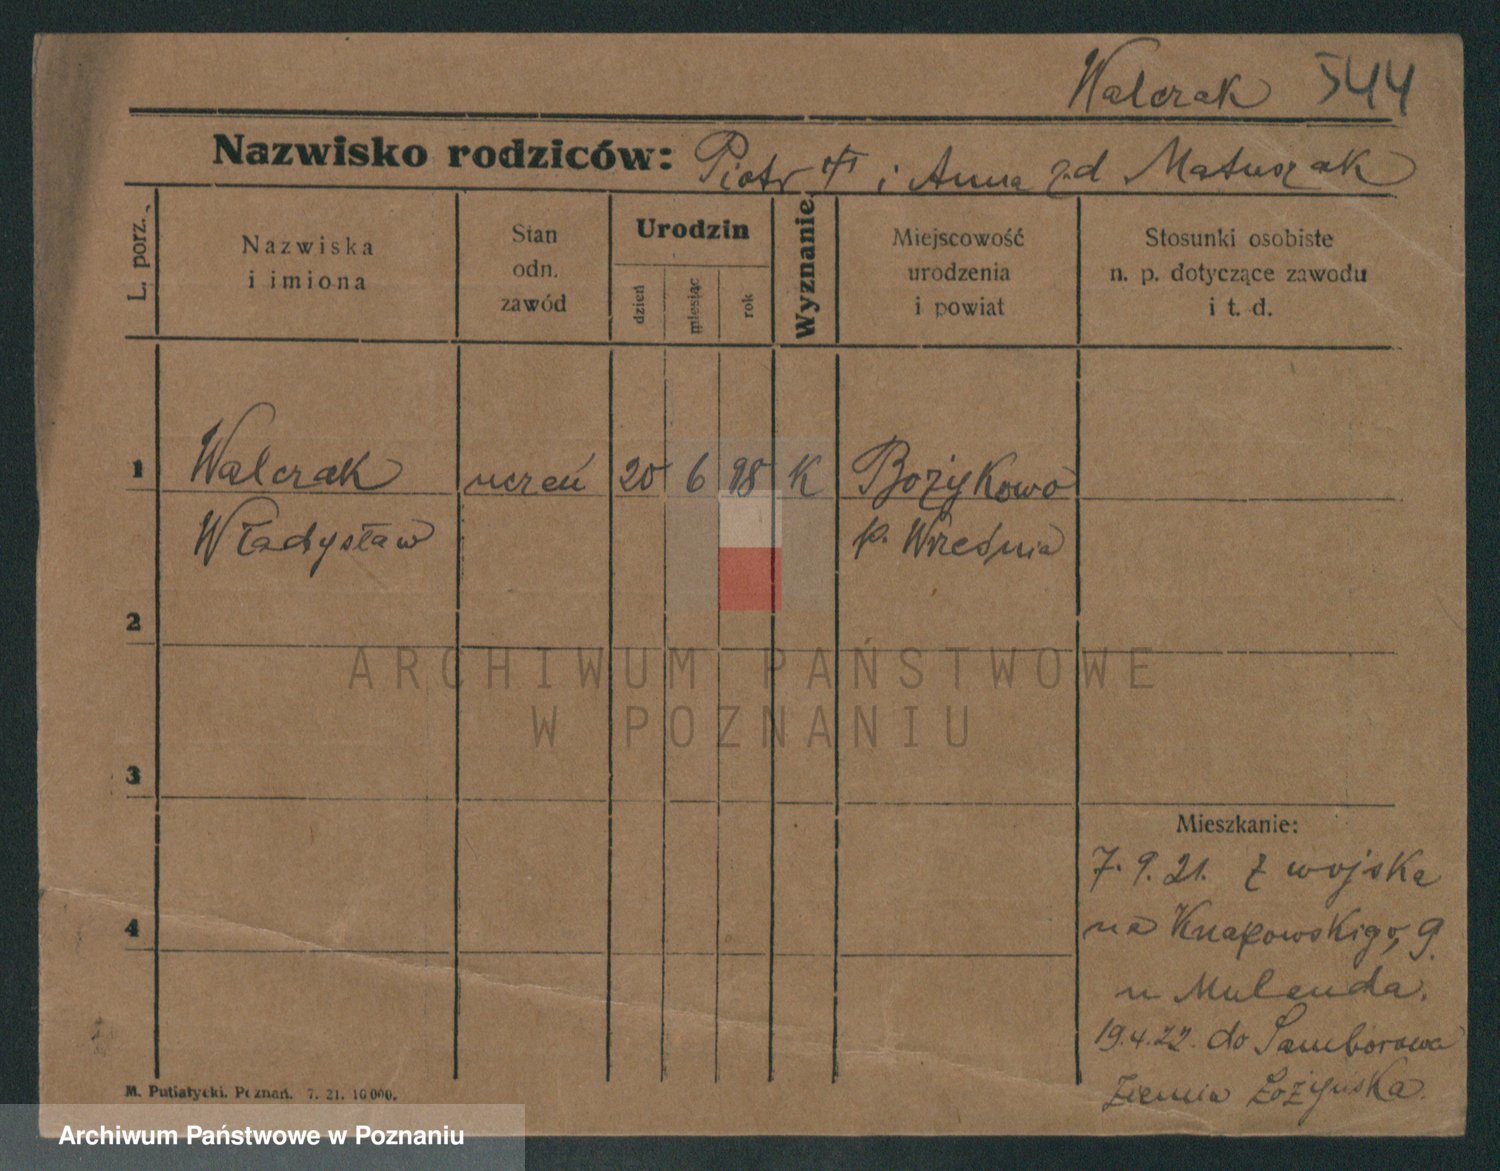 Walczak 544
Nazwisko rodziców: Piotr i Anna zd Matuszak
L. porz.
Nazwiska
i imiona
Stan
odn.
zawód
Urodzin
dzień
miesiąc
rok
Wyznanie
Miejscowość
urodzenia
i powiat
Stosunki osobiste
n. p. dotyczące zawodu
i t. d.
1 Walczak uczeń 20 6 98 K Bożykowo
Władysław p. Września
2
ARCHIWUM PAŃSTWOWE
W POZNANIU
3
Mieszkanie:
7. 9. 21. z wojska
4 na Knapowskigo, 9.
u Mulenda.
19.4.22. do Samborowa
Ziemia
M. Putiatycki. Poznań. 7. 21. 10 000.
Archiwum Państwowe w Poznaniu